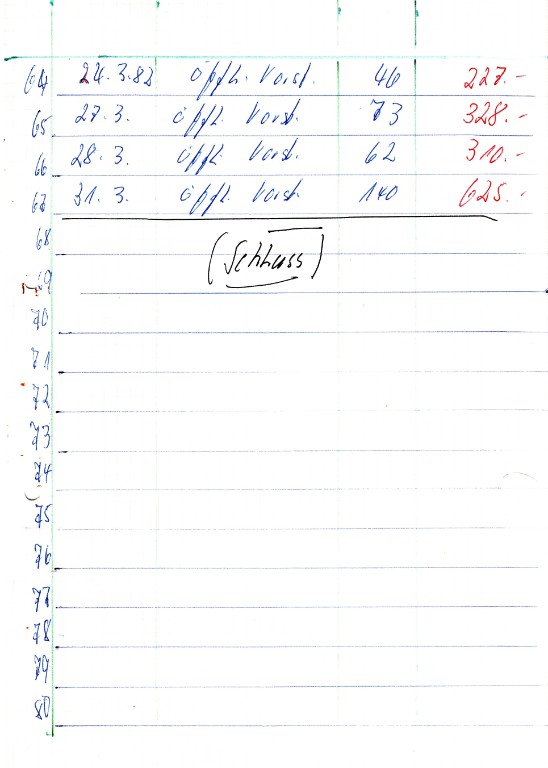 64 24.3.82 öffh. Vorst. 46 227.-
65 27.3. öffh. Vorst. 73 328.-
66 28.3. öffh. Vorst. 62 310.-
67 31.3. öffh. Vorst. 140 625.-
68
(Schluss)
69
70
71
72
73
74
75
76
77
78
79
80